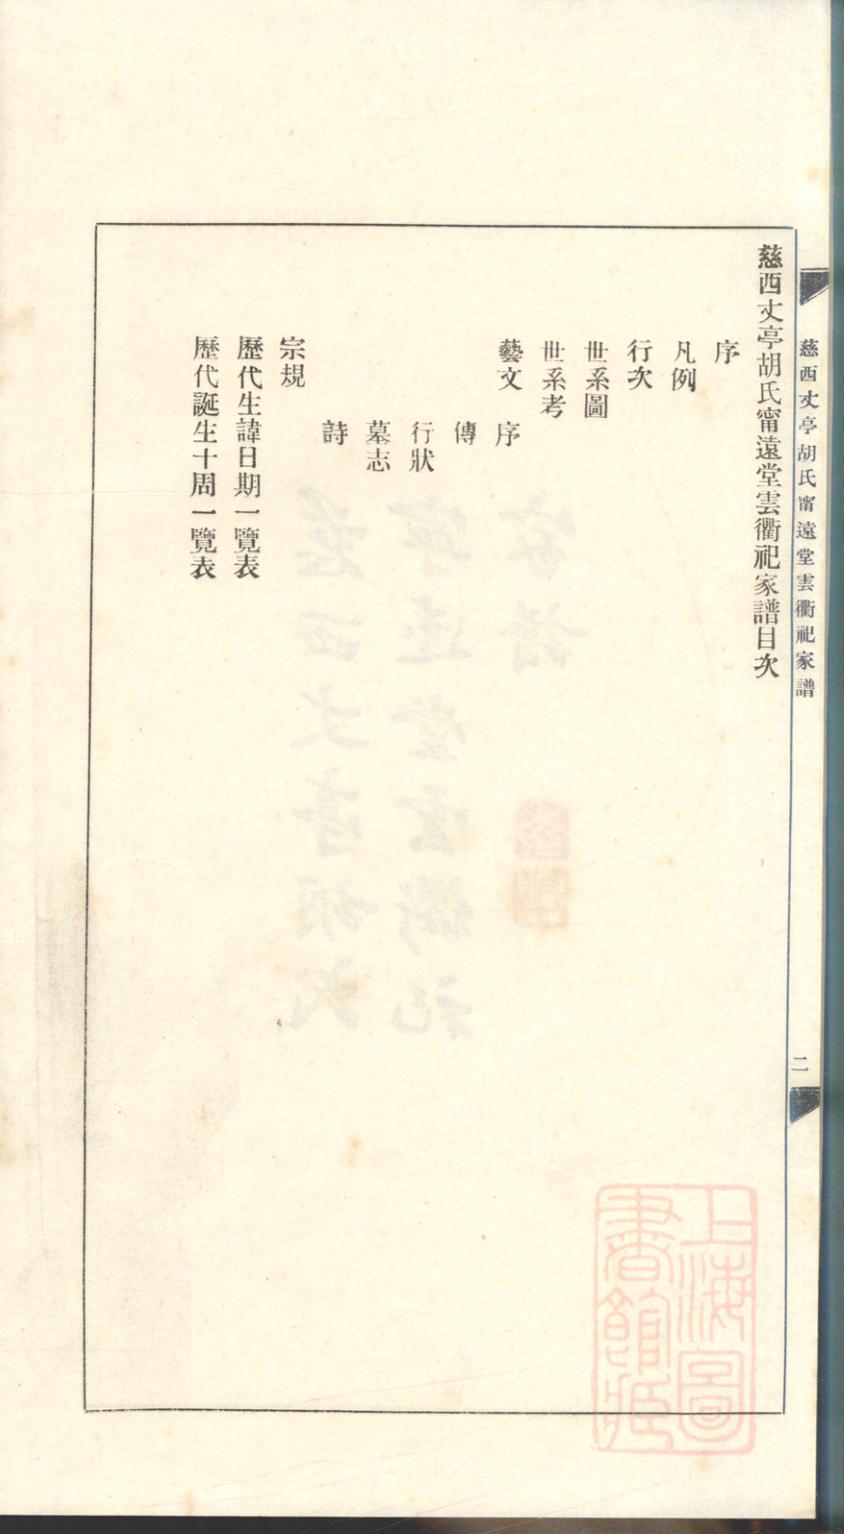 慈西丈亭胡氏甯遠堂雲衢祀家譜
二
慈西丈亭胡氏甯遠堂雲衢祀家譜目次
序
凡例
行次
世系圖
世系考
藝文 序
傳
行狀
墓志
詩
宗規
歷代生諱日期一覽表
歷代誕生十周一覽表
上海圖
書館藏